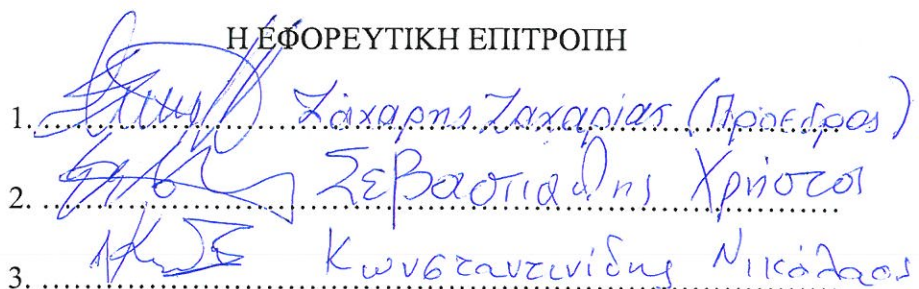 Η ΕΦΟΡΕΥΤΙΚΗ ΕΠΙΤΡΟΠΗ
1. Ζάχαρης Ζαχαρίας (Πρόεδρος)
2. Σεβαστιάδης Χρήστος
3. Κωνσταντινίδης Νικόλαος